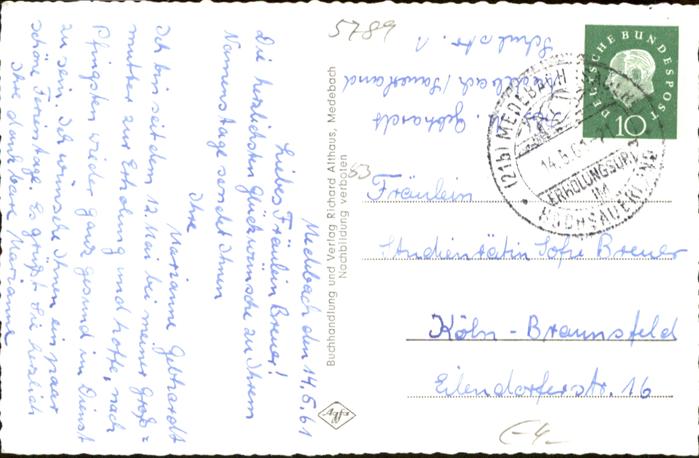 5789
Medebach den 14.5.61
Liebes Fräulein Breuer!
Die herzlichsten Glückwünsche zu Ihrem
Namenstage sendet Ihnen
Ihre
Marianne Gebhardt
Ich bin seit dem 12. Mai bei meiner Groß=
mutter zur Erholung und hoffe, nach
Pfingsten wieder ganz gesund im Dienst
zu sein. Ich wünsche Ihnen ein paar
schöne Ferientage. Es grüßt Sie herzlich
Ihre dankbare Marianne
Gebhardt
Medebach/Sauerland
Schulstr. 1
Buchhandlung und Verlag Richard Althaus, Medebach
Nachbildung verboten
53
Agfa
DEUTSCHE BUNDESPOST
10
(21b) MEDEBACH
14.5.61
ERHOLUNGSORT
IM
HOCHSAUERLAND
Fräulein
Studienrätin Sofie Breuer
Köln-Braunsfeld
Eilendorferstr. 16